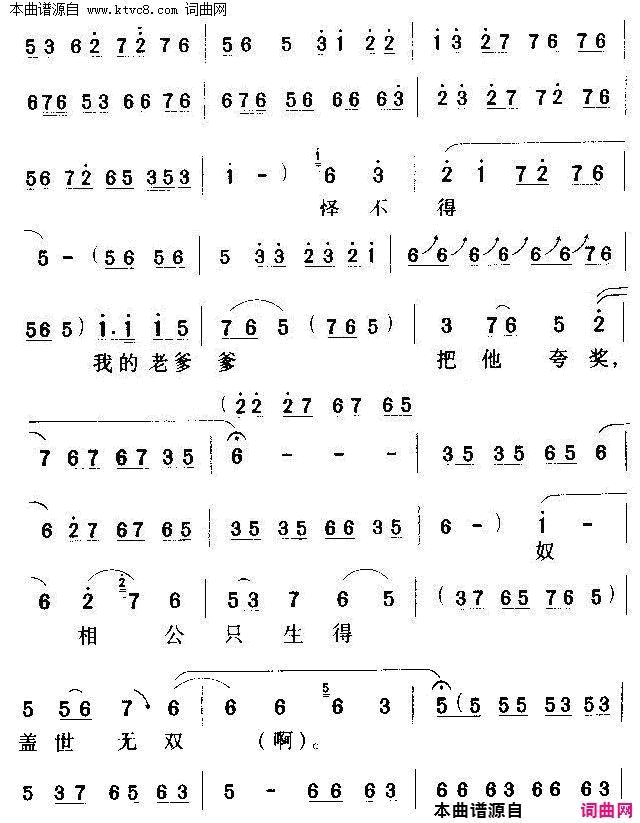 本曲谱源自 www.ktvc8.com 词曲网
53 62 72 76 | 56 5 31 22 | 13 27 76 76
676 53 66 76 | 676 56 66 63 | 23 27 72 76
56 72 65 353 | 1 - ) 6 3 | 2 1 72 76
怪 不 得
5 - (56 56 | 5 33 23 21 | 6 6 6 6 6 76
565) 1.1 15 | 76 5 (765) | 3 76 5 2
我的 老爹 爹 把 他 夸 奖,
(22 27 67 65
7 67 67 35 | 6 - - - | 35 35 65 6
6 27 67 65 | 35 35 66 35 | 6 - ) 1 -
奴
6 2 7 6 | 53 7 6 5 | (37 65 76 5)
相 公 只 生 得
5 56 7 6 | 6 6 6 3 | 5 (5 55 53 53
盖 世 无 双 (啊)。
5 37 65 63 | 5 - 66 63 | 66 63 66 63
本曲谱源自 词曲网